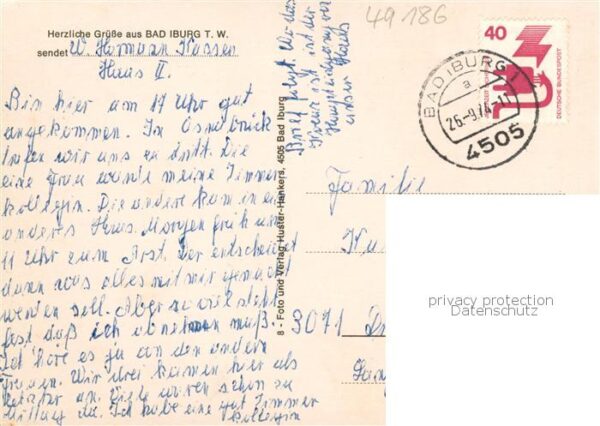 49 186
Herzliche Grüße aus BAD IBURG T. W.
sendet W. Hermann
Haus II.
Bin hier am 17 Uhr gut
angekommen. In Osnabrück
wir uns zu dritt. Die
eine Frau wurde meine Zimmer
kollegin. Die andere kam in ein
anderes Haus. Morgen früh um
11 Uhr zum Arzt. Der entscheidet
dann was alles mit mir gemacht
werden soll. Aber soviel steht
fast daß ich abnehmen muß.
Ich höre es ja von den andern
Frauen. Wir drei kamen hier als
an. Viele waren schon zu
Mittag da. Ich habe eine gut Zimmer
kollegin
Brief folgt. Wo das
Kreuz ist, ist der
Haupteingang von
unser Haus
8 - Foto und Verlag Huster-Hankers, 4505 Bad Iburg
40
DEUTSCHE BUNDESPOST
BAD IBURG 1
a
4505
Familie
3071
privacy protection
Datenschutz